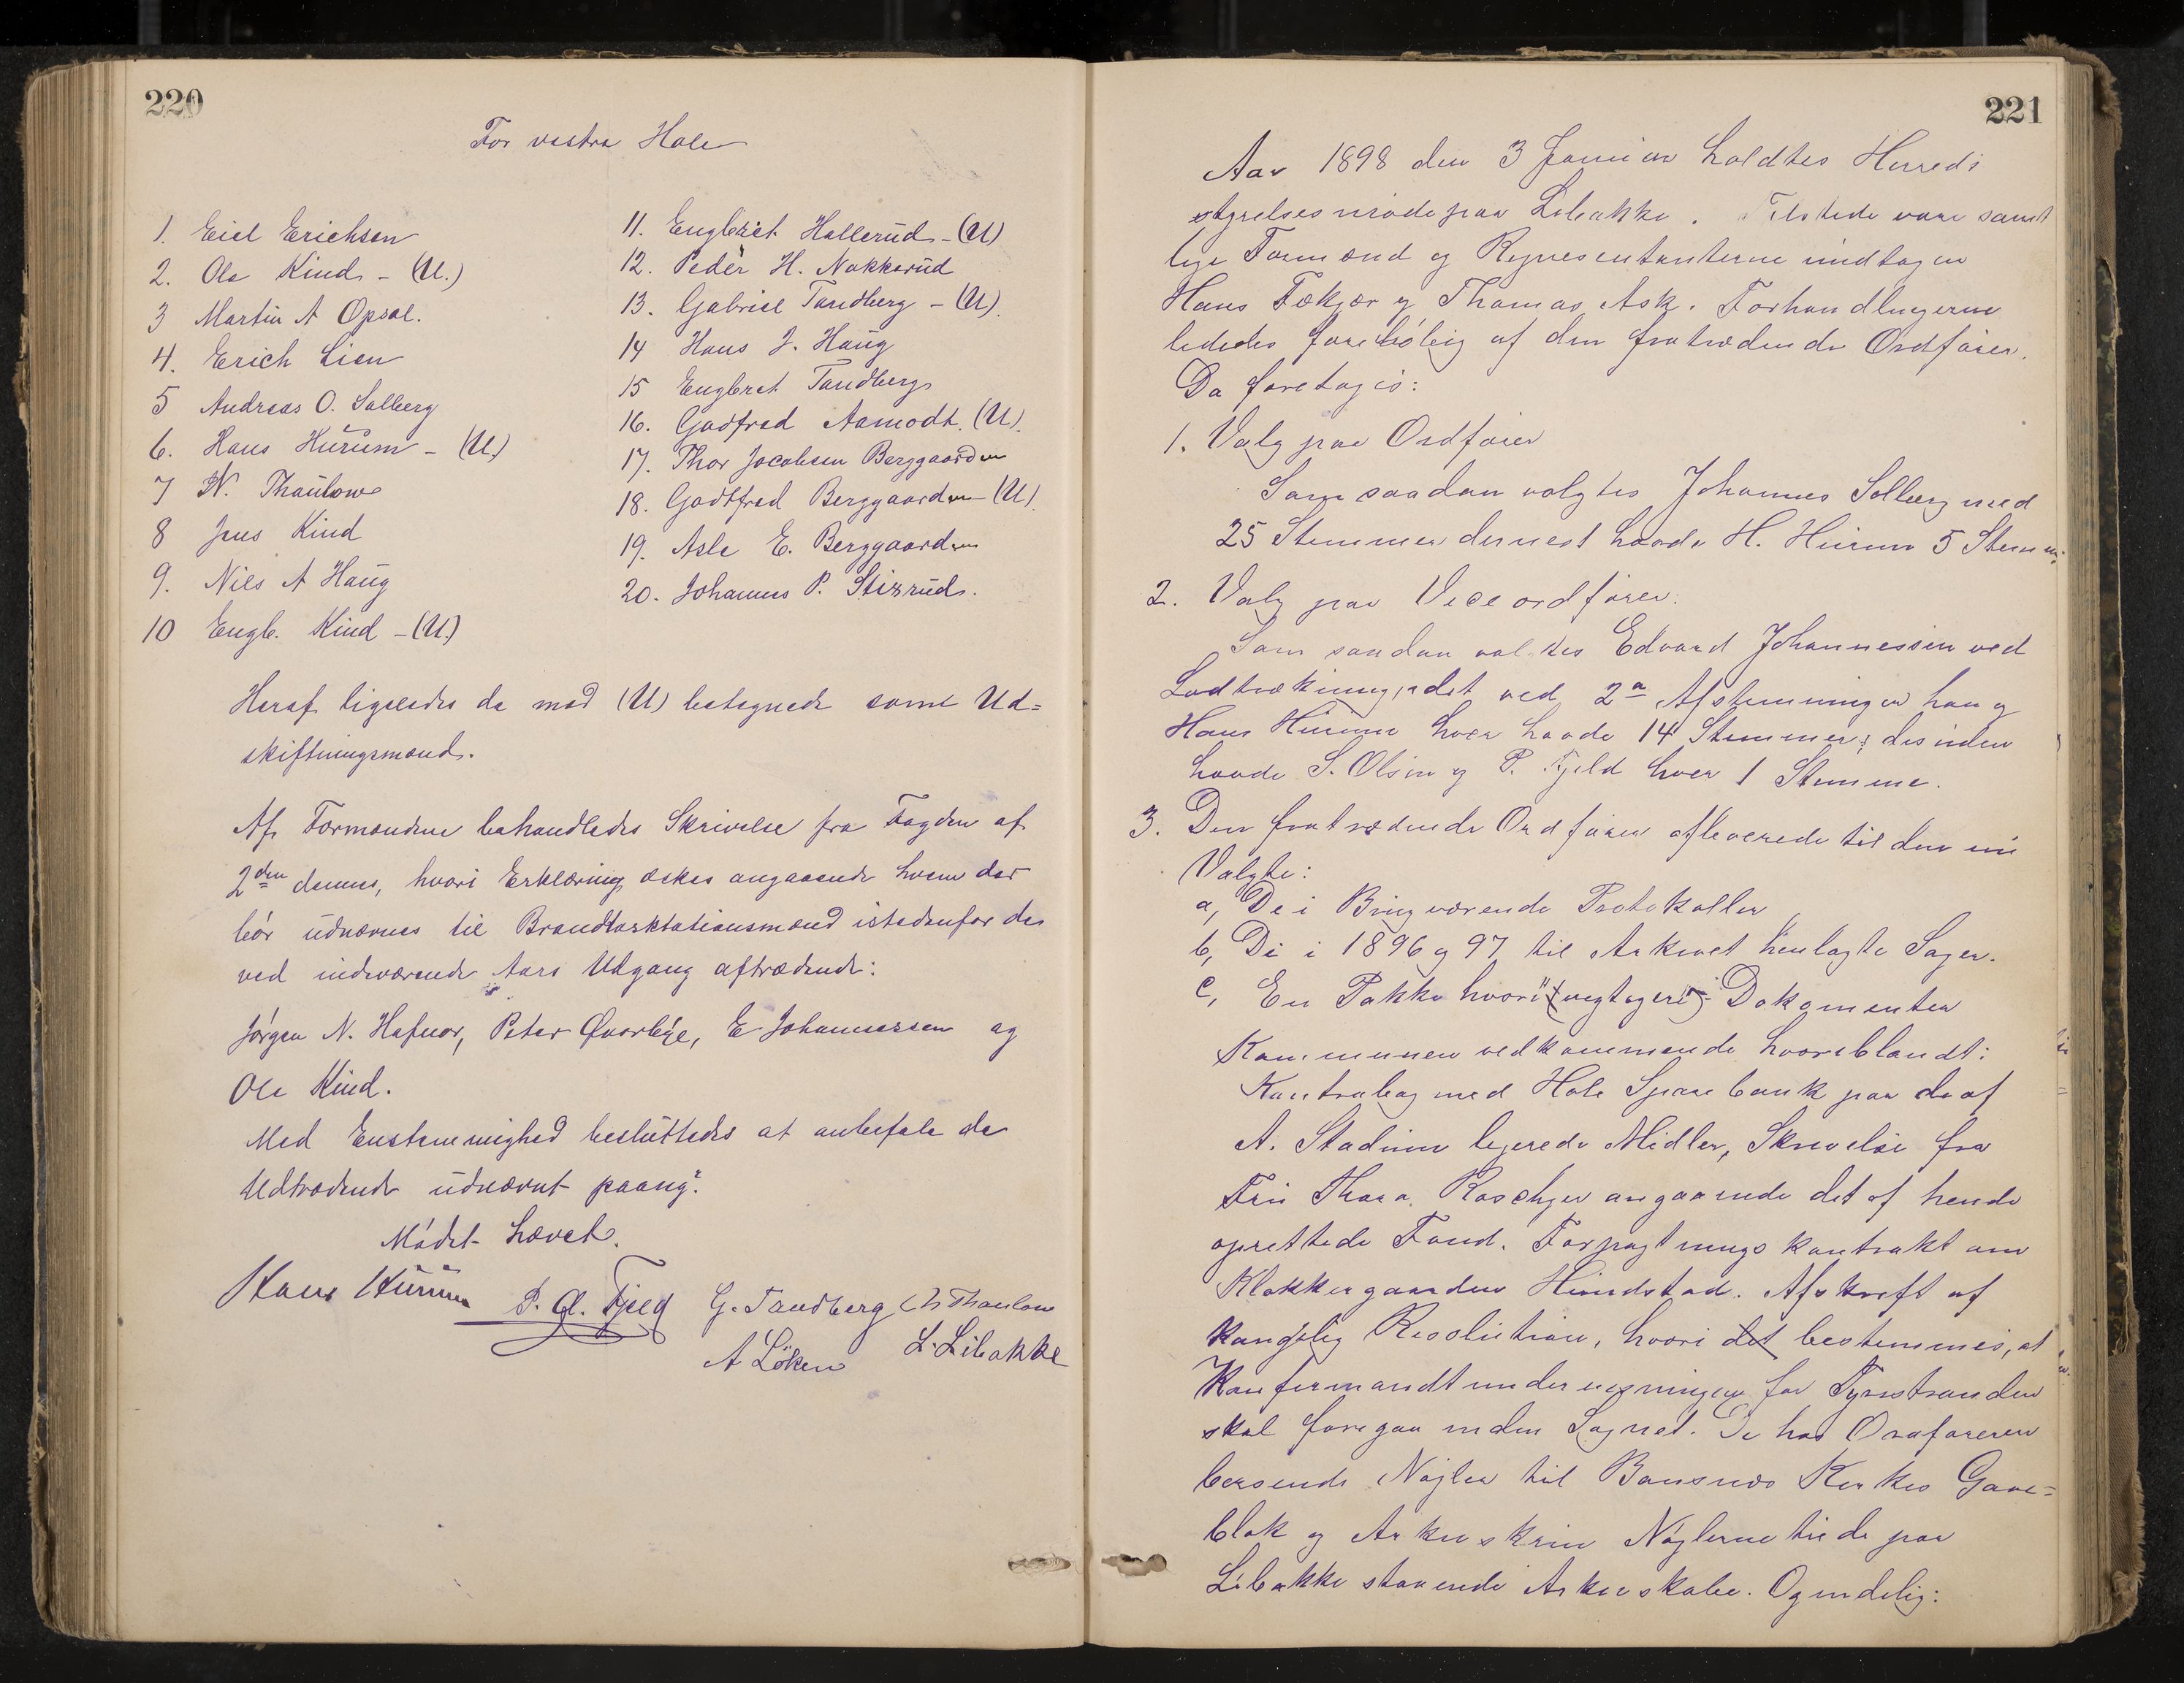 220
For vestre Hole
1. Eiel Erichsen
2. Ole Kind - (U.)
3 Martin A Opsal.
4. Erich Lien
5 Andreas O. Solberg
6. Hans Hurum - (U.)
7 N. Thaulow
8 Jens Kind
9. Nils A Haug
10 Engb. Kind - (U.)
11. Engbret Hallerud - (U)
12. Peder H. Nakkerud
13. Gabriel Tandberg - (U).
14 Hans J. Haug
15 Engbret Tandberg
16. Godfred Aamodt. (U).
17. Thor Jacobsen Berggaarden
18. Godtfred Berggaarden (U).
19. Asle E. Berggaarden
20. Johannes P. Stixrud.
Heraf ligeledes de med (U) betegnede som Ud=
skiftningsmænd.
Af Formændene behandledes Skrivelse fra Fogden af
2den dennes, hvori Erklæring æskes angaaende hvem der
bør udnævnes til Brandtakstationsmænd istedenfor de
ved indeværende Aars Udgang aftrædende:
Jørgen N. Hafnor, Peter Øverbye, E Johannessen og
Ole Kind.
Med Enstemmighed besluttedes at anbefale de
Udtrædende udnævnt paany.
Mødet hævet.
Hans Hurum P. Gl. Fjeld G. Tandberg N Thaulow
A Løken L. Libakke
221
Aar 1898 den 3 Januar holdtes Herreds
styrelsesmøde paa Libakke. Tilstede vare samt
lige Formænd og Representanterne undtagen
Hans Fekjær og Thomas Ask. Forhandlingerne
lededes foreløbig af den fratrædende Ordfører.
Da foretoges:
1. Valg paa Ordfører
Som saadan valgtes Johannes Solberg med
25 Stemmer dernest havde H. Hurum 5 Stemm.
2. Valg paa Viceordfører.
Som saadan valgtes Edvard Johannessen ved
Lodtrækning, idet ved 2a Afstemninger han og
Hans Hurum hver havde 14 Stemmer; desuden
havde S. Olsen og P. Fjeld hver 1 Stemme.
3. Den fratrædende Ordfører afleverede til den nu
Valgte:
a, De i Brug værende Protokoller
b, De i 1896 og 97 til Arkivet henlagte Sager.
c, En Pakke hvori vigtigere Dokomenter
Kommunen vedkommende hvoriblandt:
Kontrakt med Hole Sparebank paa de af
A. Stadum legerede Midler, Skrivelse fra
Fru Thora angaaende det af hende
oprettede Fond. Forpagtningskontrakt om
Klokkergaarden Hundstad. Afskrift af
Kongelig Resolution, hvori det bestemmes, at
Konfirmandtundervisningen for Tyristranden
skal foregaa inden Sognet. De hos Ordføreren
beroende Nøgler til Bønsnes Kirkes Gave=
blok og Arkivskrin Nøglerne til de paa
Libakke staaende Arkivskabe. Og endelig: